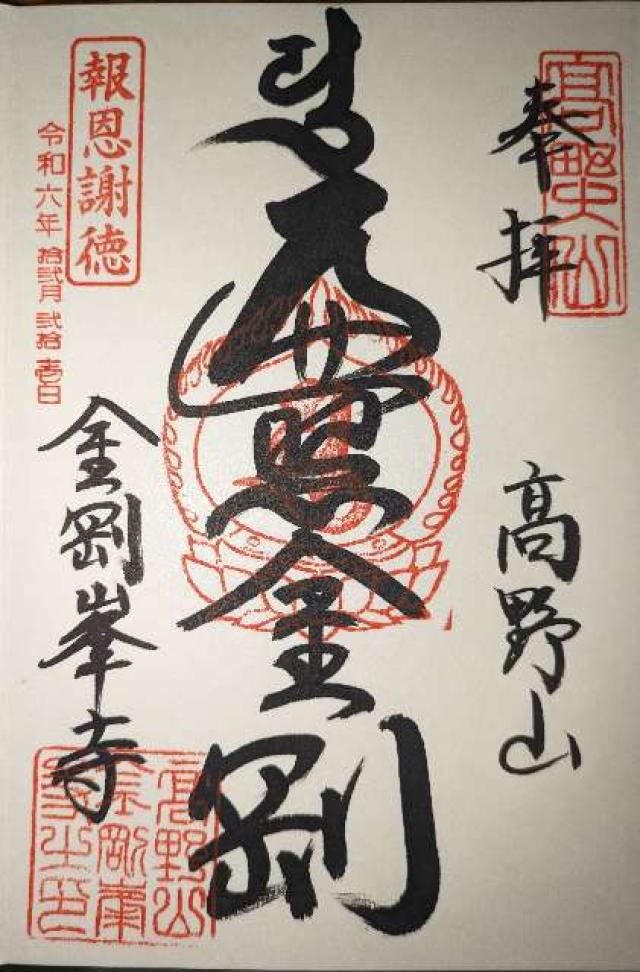 高野山
奉拝
高野山
遍照金剛
報恩謝徳
令和六年 拾弐月 弐拾壱日
金剛峯寺
高野山
金剛峯
寺之印